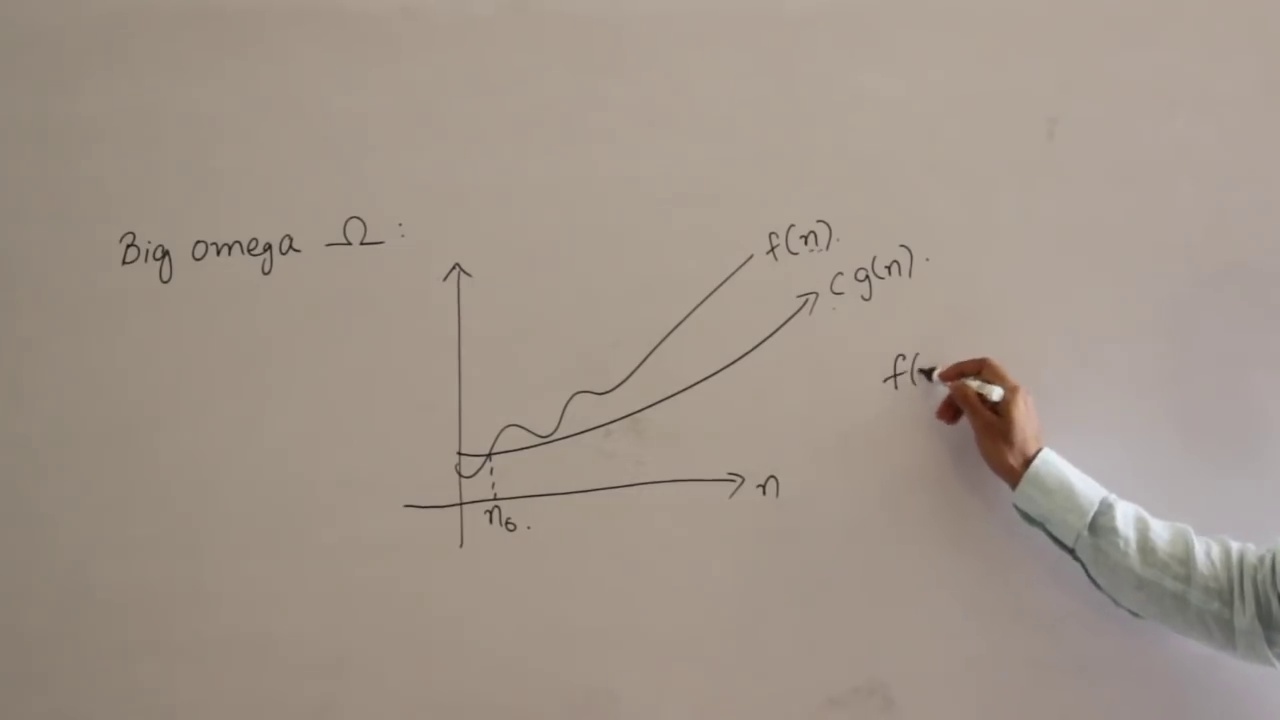 Big omega Ω :
f(n).
c g(n).
f(
n
n₀.